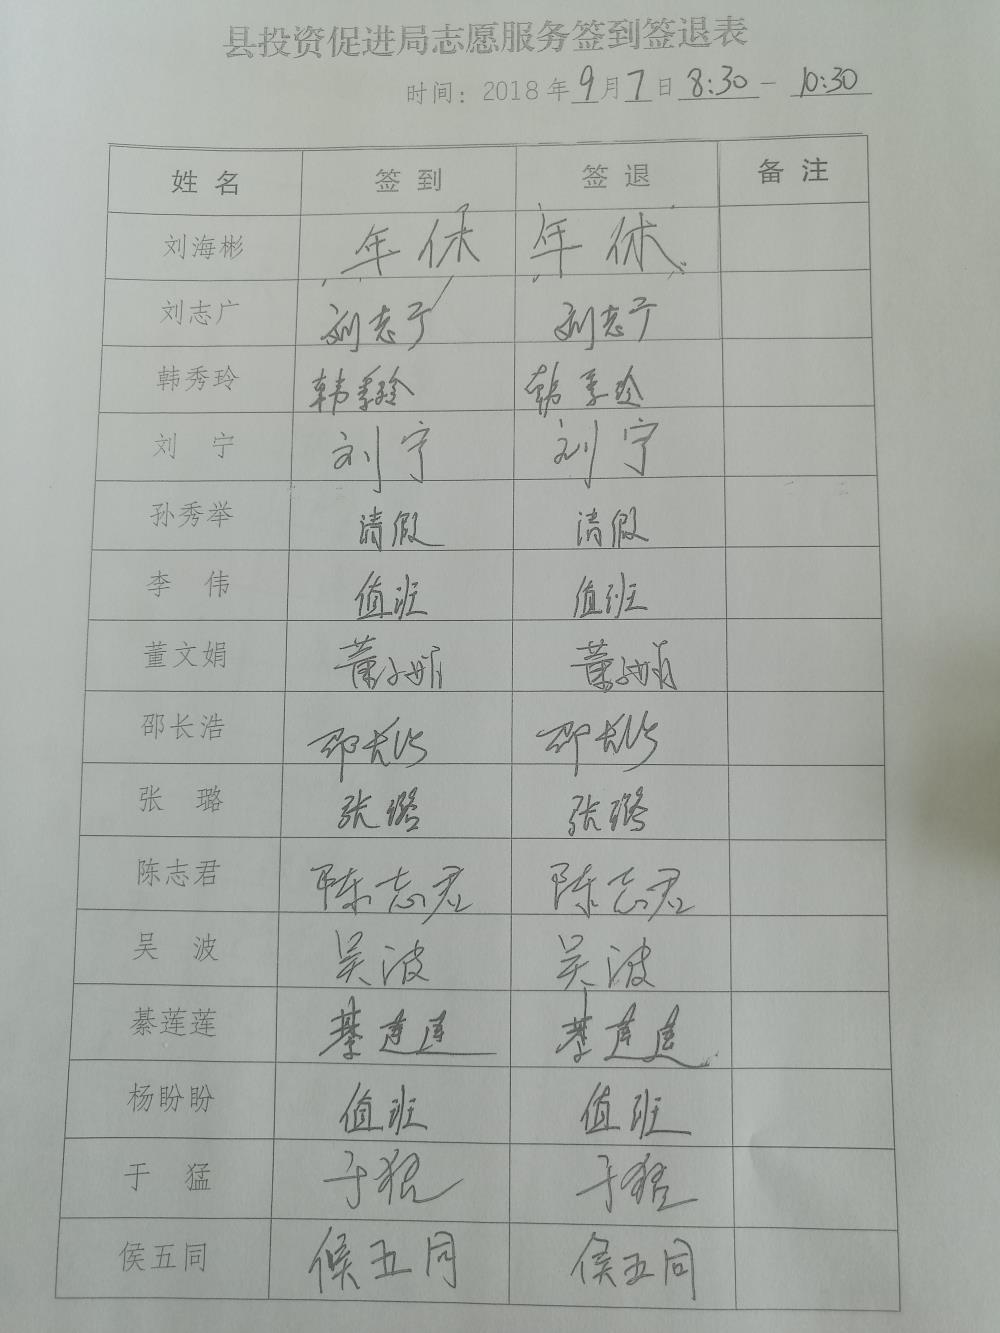 县投资促进局志愿服务签到签退表
时间：2018年9月7日 8:30 - 10:30
姓名 签到 签退 备注
刘海彬 年休 年休
刘志广 刘志广 刘志广
韩秀玲 韩秀玲 韩秀玲
刘 宁 刘宁 刘宁
孙秀举 请假 请假
李 伟 值班 值班
董文娟 董文娟 董文娟
邵长浩 邵长浩 邵长浩
张 璐 张璐 张璐
陈志君 陈志君 陈志君
吴 波 吴波 吴波
綦莲莲 綦莲莲 綦莲莲
杨盼盼 值班 值班
于 猛 于猛 于猛
侯五同 侯五同 侯五同